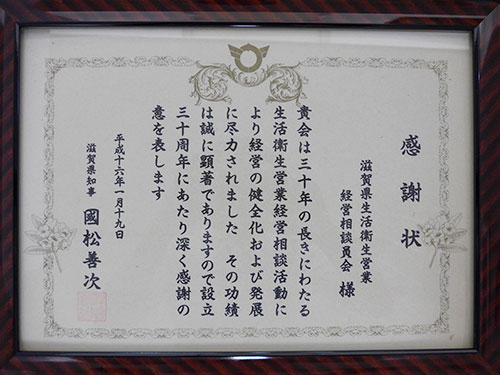 感謝状
滋賀県生活衛生営業
経営相談員会 様
貴会は三十年の長きにわたる
生活衛生営業経営相談活動に
より経営の健全化および発展
に尽力されました その功績
は誠に顕著でありますので設立
三十周年にあたり深く感謝の
意を表します
平成十六年一月十九日
滋賀県知事 國松善次